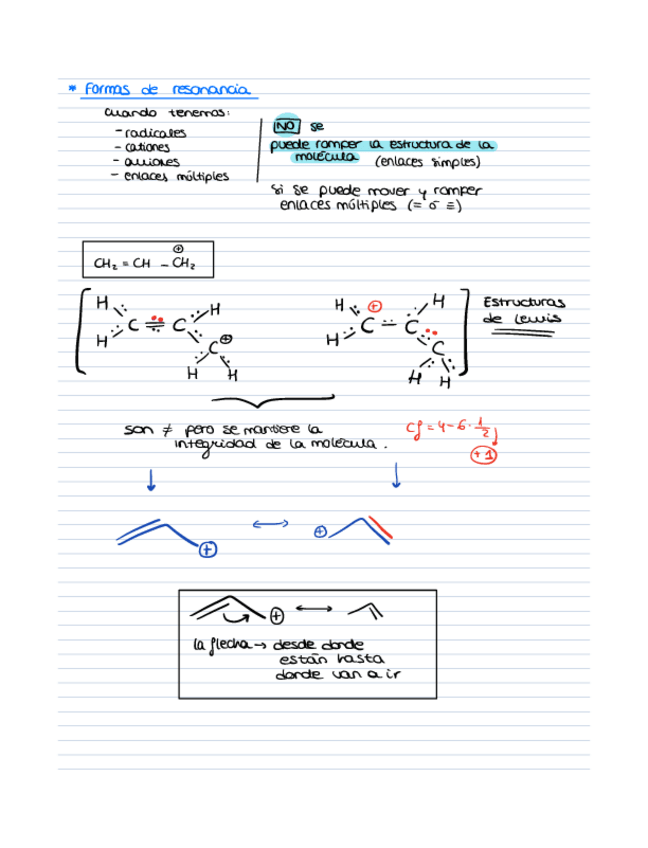 * Formas de resonancia
cuando tenemos:
- radicales
- cationes
- aniones
- enlaces múltiples
NO se
puede romper la estructura de la
molécula (enlaces simples)
si se puede mover y romper
enlaces múltiples (= o ≡)
⊕
CH₂ = CH - CH₂
H H H ⊕ H
C C C C
H C ⊕ H C
H H H H
Estructuras
de Lewis
son ≠ pero se mantiene la
integridad de la molécula.
Cf = 4 - 6 · 1/2
+1
⊕ ↔ ⊕
⊕ ↔
la flecha → desde donde
están hasta
donde van a ir